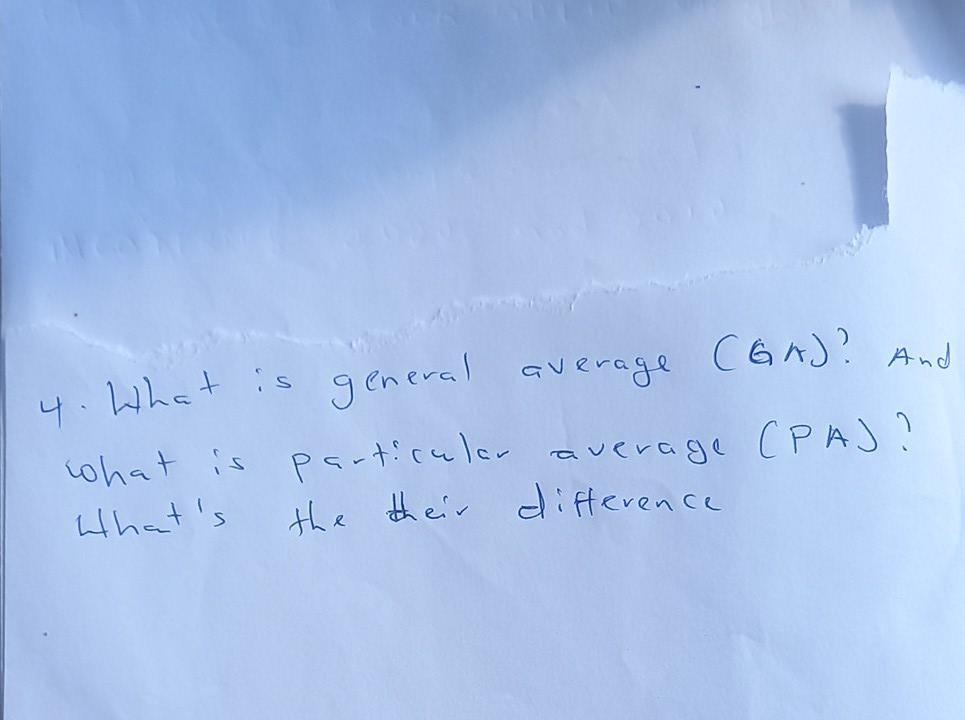 4. What is general average (GA)? And
what is particular average (PA)?
What's the their difference